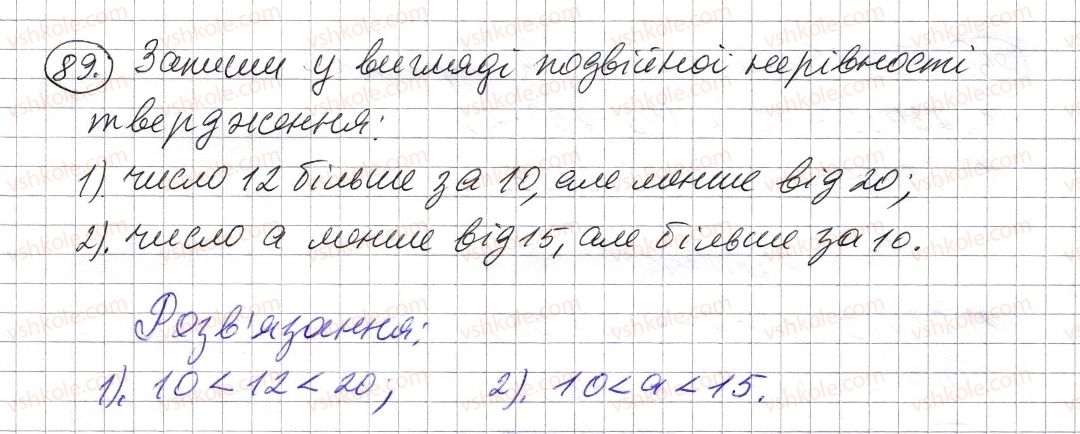 89. Запиши у вигляді подвійної нерівності
твердження:
1). число 12 більше за 10, але менше від 20;
2). число a менше від 15, але більше за 10.
Розв'язання:
1). 10 < 12 < 20; 2). 10 < a < 15.